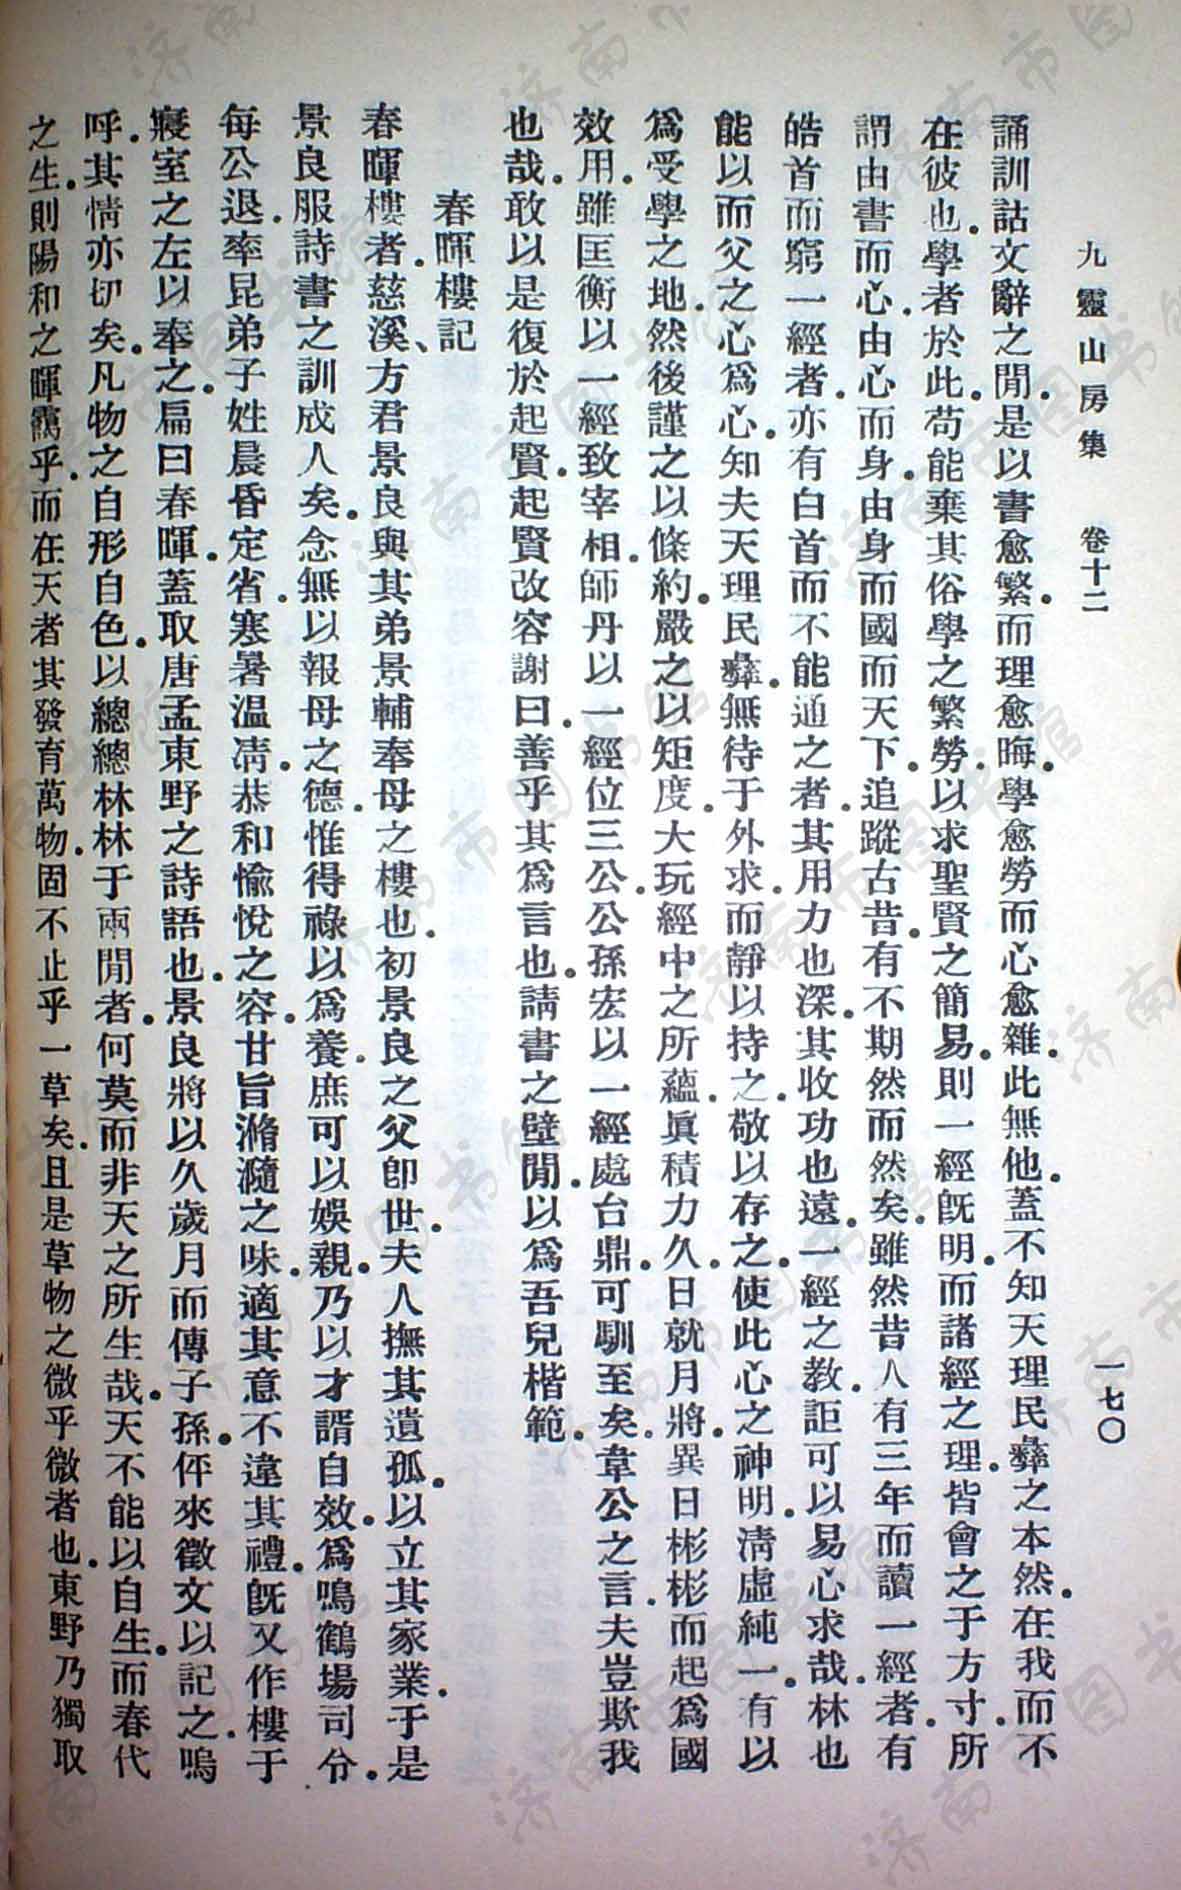 九靈山房集　卷十二
一七〇
誦訓詁文辭之閒。是以書愈繁。而理愈晦。學愈勞而心愈雜。此無他。蓋不知天理民彝之本然。在我而不
在彼也。學者於此。苟能棄其俗學之繁勞。以求聖賢之簡易。則一經旣明。而諸經之理。皆會之于方寸。所
謂由書而心。由心而身。由身而國而天下。追蹤古昔。有不期然而然矣。雖然昔人有三年而讀一經者。有
皓首而窮一經者。亦有白首而不能通之者。其用力也深。其收功也遠。一經之教。詎可以易心求哉。林也
能以而父之心爲心。知夫天理民彝。無待于外求。而靜以持之。敬以存之。使此心之神明。清虛純一。有以
爲受學之地。然後謹之以條約。嚴之以矩度。大玩經中之所蘊。眞積力久。日就月將。異日彬彬而起爲國
效用。雖匡衡以一經致宰相。師丹以一經位三公。公孫宏以一經處台鼎。可馴至矣。韋公之言。夫豈欺我
也哉。敢以是復於起賢。起賢改容謝曰。善乎其爲言也。請書之壁閒。以爲吾兒楷範。
春暉樓記
春暉樓者。慈溪、方君景良與其弟景輔奉母之樓也。初景良之父卽世。夫人撫其遺孤。以立其家業。于是
景良服詩書之訓成人矣。念無以報母之德。惟得祿以爲養。庶可以娛親。乃以才諝自效。爲鳴鶴場司令。
每公退。率昆弟子姓晨昏定省。寒暑溫凊。恭和愉悅之容。甘旨滫瀡之味。適其意不違其禮。旣又作樓于
寢室之左以奉之。扁曰春暉。蓋取唐孟東野之詩語也。景良將以久歲月而傳子孫。伻來徵文以記之。嗚
呼。其情亦切矣。凡物之自形自色。以總總林林于兩閒者。何莫而非天之所生哉。天不能以自生。而春代
之生。則陽和之暉靄乎。而在天者其發育萬物。固不止乎一草矣。且是草物之微乎微者也。東野乃獨取